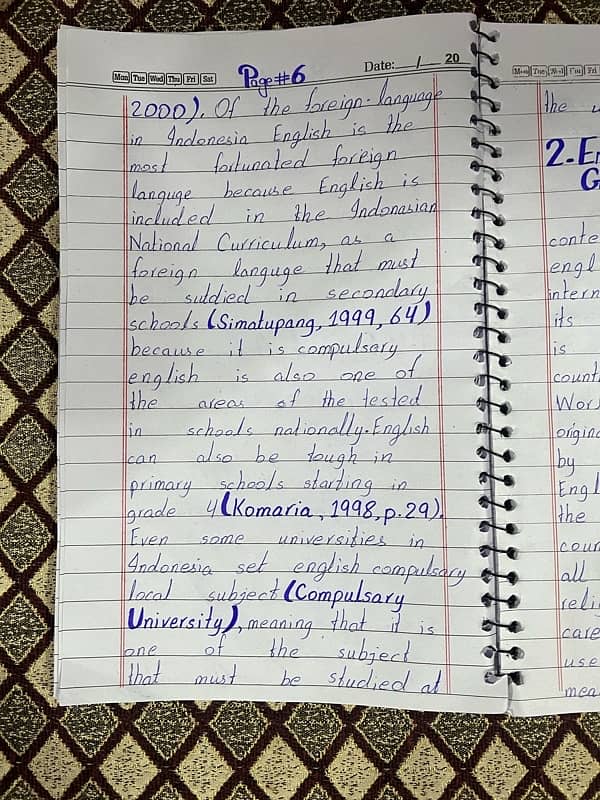 Mon Tue Wed Thu Fri Sat
Page #6
Date: __/__ 20
2000). Of the foreign language
in Indonesia English is the
most fortunated foreign
languge because English is
included in the Indonasian
National Curriculum, as a
foreign languge that must
be suddied in secondary
schools (Simatupang, 1999, 64)
because it is compulsary
english is also one of
the areas of the tested
in schools nationally. English
can also be tough in
primary schools starting in
grade 4 (Komaria, 1998, p.29).
Even some universities in
Indonesia set english compulsary
local subject (Compulsary
University), meaning that it is
one of the subject
that must be studied at
the
2.
conte
engl
intern
its
is
count
Wor
origina
by
Engl
the
coun
all
relig
care
use
mea